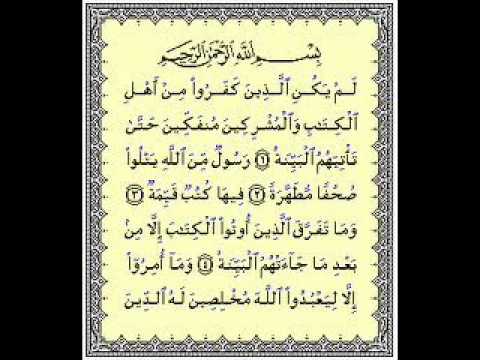 بِسْمِ ٱللَّهِ ٱلرَّحْمَٰنِ ٱلرَّحِيمِ
لَمْ يَكُنِ ٱلَّذِينَ كَفَرُوا۟ مِنْ أَهْلِ
ٱلْكِتَٰبِ وَٱلْمُشْرِكِينَ مُنفَكِّينَ حَتَّىٰ
تَأْتِيَهُمُ ٱلْبَيِّنَةُ ﴿١﴾ رَسُولٌ مِّنَ ٱللَّهِ يَتْلُوا۟
صُحُفًا مُّطَهَّرَةً ﴿٢﴾ فِيهَا كُتُبٌ قَيِّمَةٌ ﴿٣﴾
وَمَا تَفَرَّقَ ٱلَّذِينَ أُوتُوا۟ ٱلْكِتَٰبَ إِلَّا مِنۢ
بَعْدِ مَا جَآءَتْهُمُ ٱلْبَيِّنَةُ ﴿٤﴾ وَمَآ أُمِرُوٓا۟
إِلَّا لِيَعْبُدُوا۟ ٱللَّهَ مُخْلِصِينَ لَهُ ٱلدِّينَ